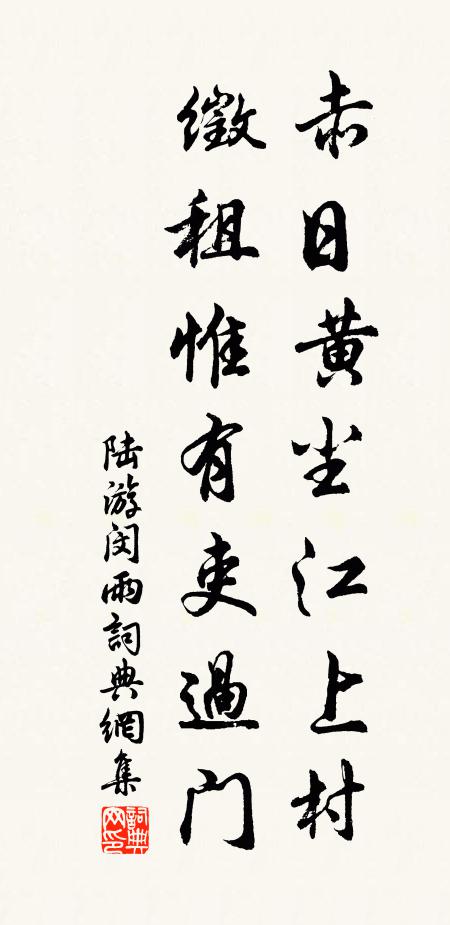 赤日黄尘江上村
徵租惟有吏過門
陆游闵雨詞典網集
詞典网印